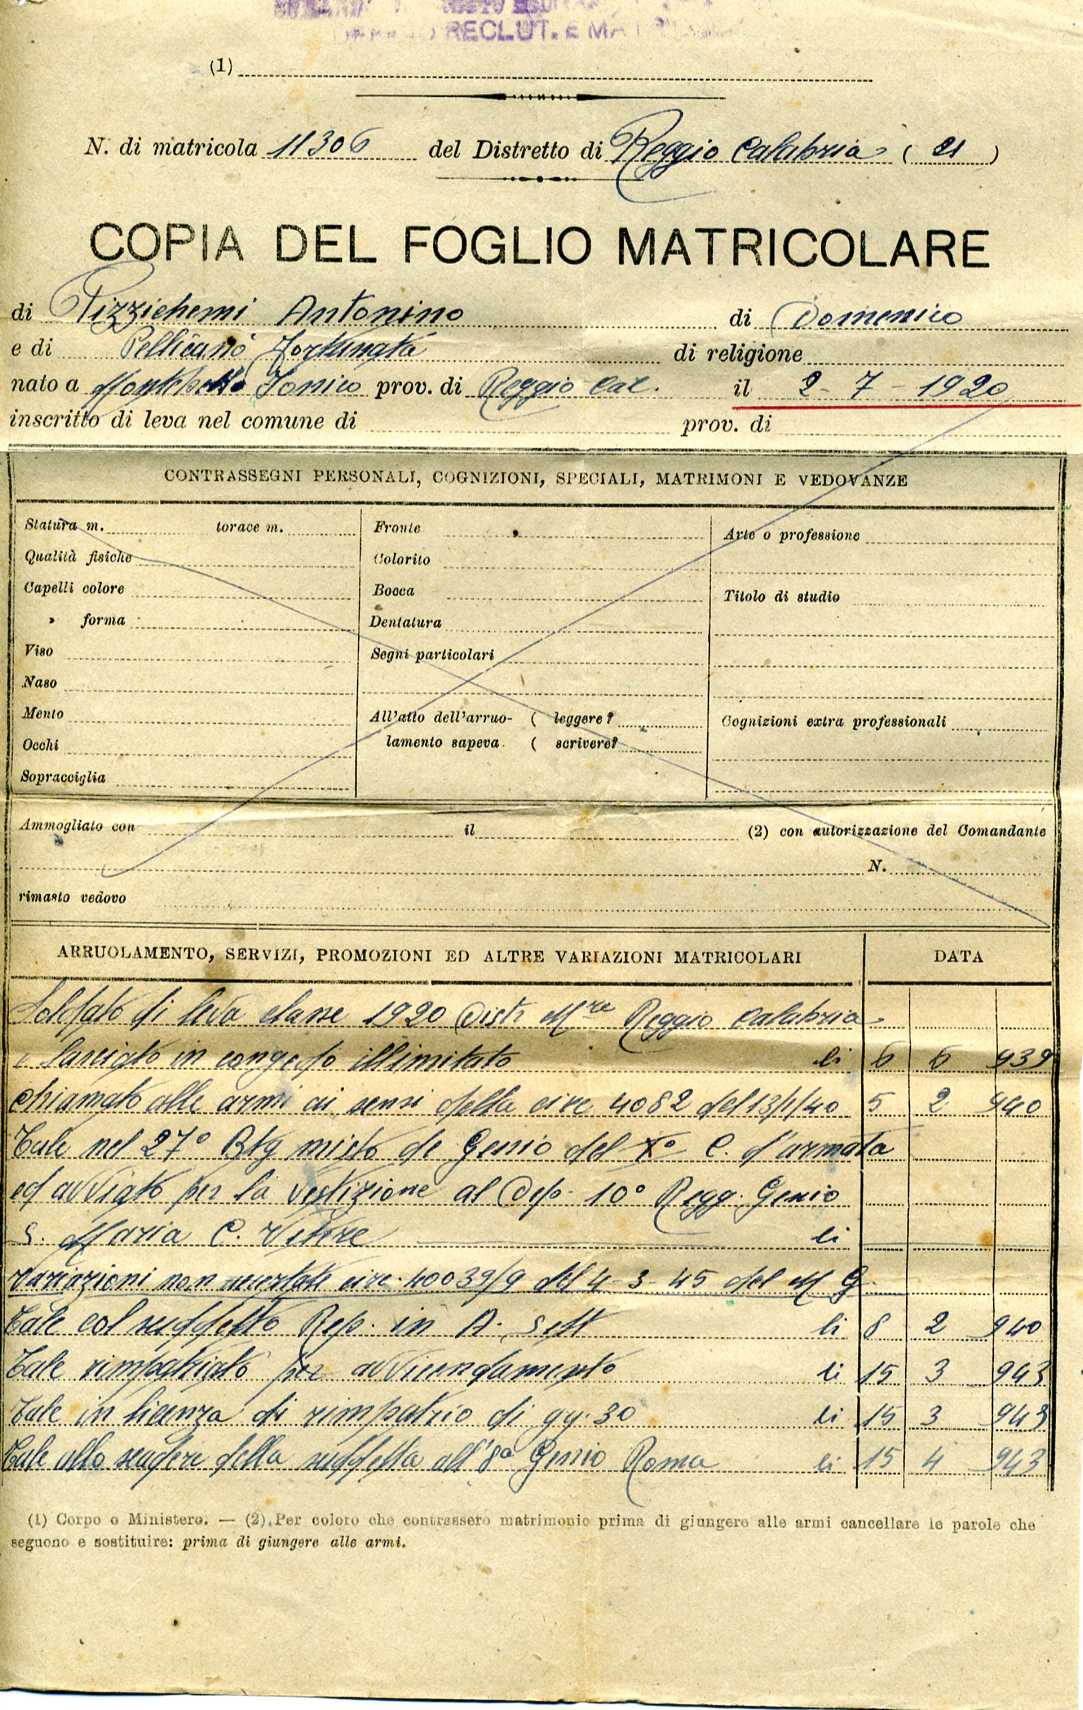 RECLUT. E MA
(1)
N. di matricola 11306 del Distretto di Reggio Calabria (21)
COPIA DEL FOGLIO MATRICOLARE
di Pizzichemi Antonino di Domenico
e di Pellicanò Fortunata di religione
nato a Montebello Jonico prov. di Reggio Cal. il 2-7 1920
inscritto di leva nel comune di prov. di
CONTRASSEGNI PERSONALI, COGNIZIONI, SPECIALI, MATRIMONI E VEDOVANZE
Statura m. torace m.
Qualità fisiche
Capelli colore
» forma
Viso
Naso
Mento
Occhi
Sopracciglia
Fronte
Colorito
Bocca
Dentatura
Segni particolari
All'atto dell'arruo- ( leggere?
lamento sapeva. ( scrivere?
Arte o professione
Titolo di studio
Cognizioni extra professionali
Ammogliato con il (2) con autorizzazione del Comandante
N.
rimasto vedovo
ARRUOLAMENTO, SERVIZI, PROMOZIONI ED ALTRE VARIAZIONI MATRICOLARI DATA
Soldato di leva classe 1920 Distr Mre Reggio Calabria
e lasciato in congedo illimitato li 6 6 939
Chiamato alle armi ai sensi della circ 4082 del 13/1/40 5 2 940
Tale nel 27° Btg misto de Genio del X° C. d'armata
ed avviato per la vestizione al Dep. 10° Regg. Genio
S. Maria C. Vetere li
Variazioni non accertate circ. 40039/9 del 4-3-45 del M G.
Tale col suddetto Rep. in A. Sett li 8 2 940
Tale rimpatriato per avvicendamento li 15 3 943
Tale in licenza di rimpatrio di gg. 30 li 15 3 943
Tale allo scadere della suddetta all'8° Genio Roma li 15 4 943
(1) Corpo o Ministero. — (2) Per coloro che contrassero matrimonio prima di giungere alle armi cancellare le parole che
seguono e sostituire: prima di giungere alle armi.